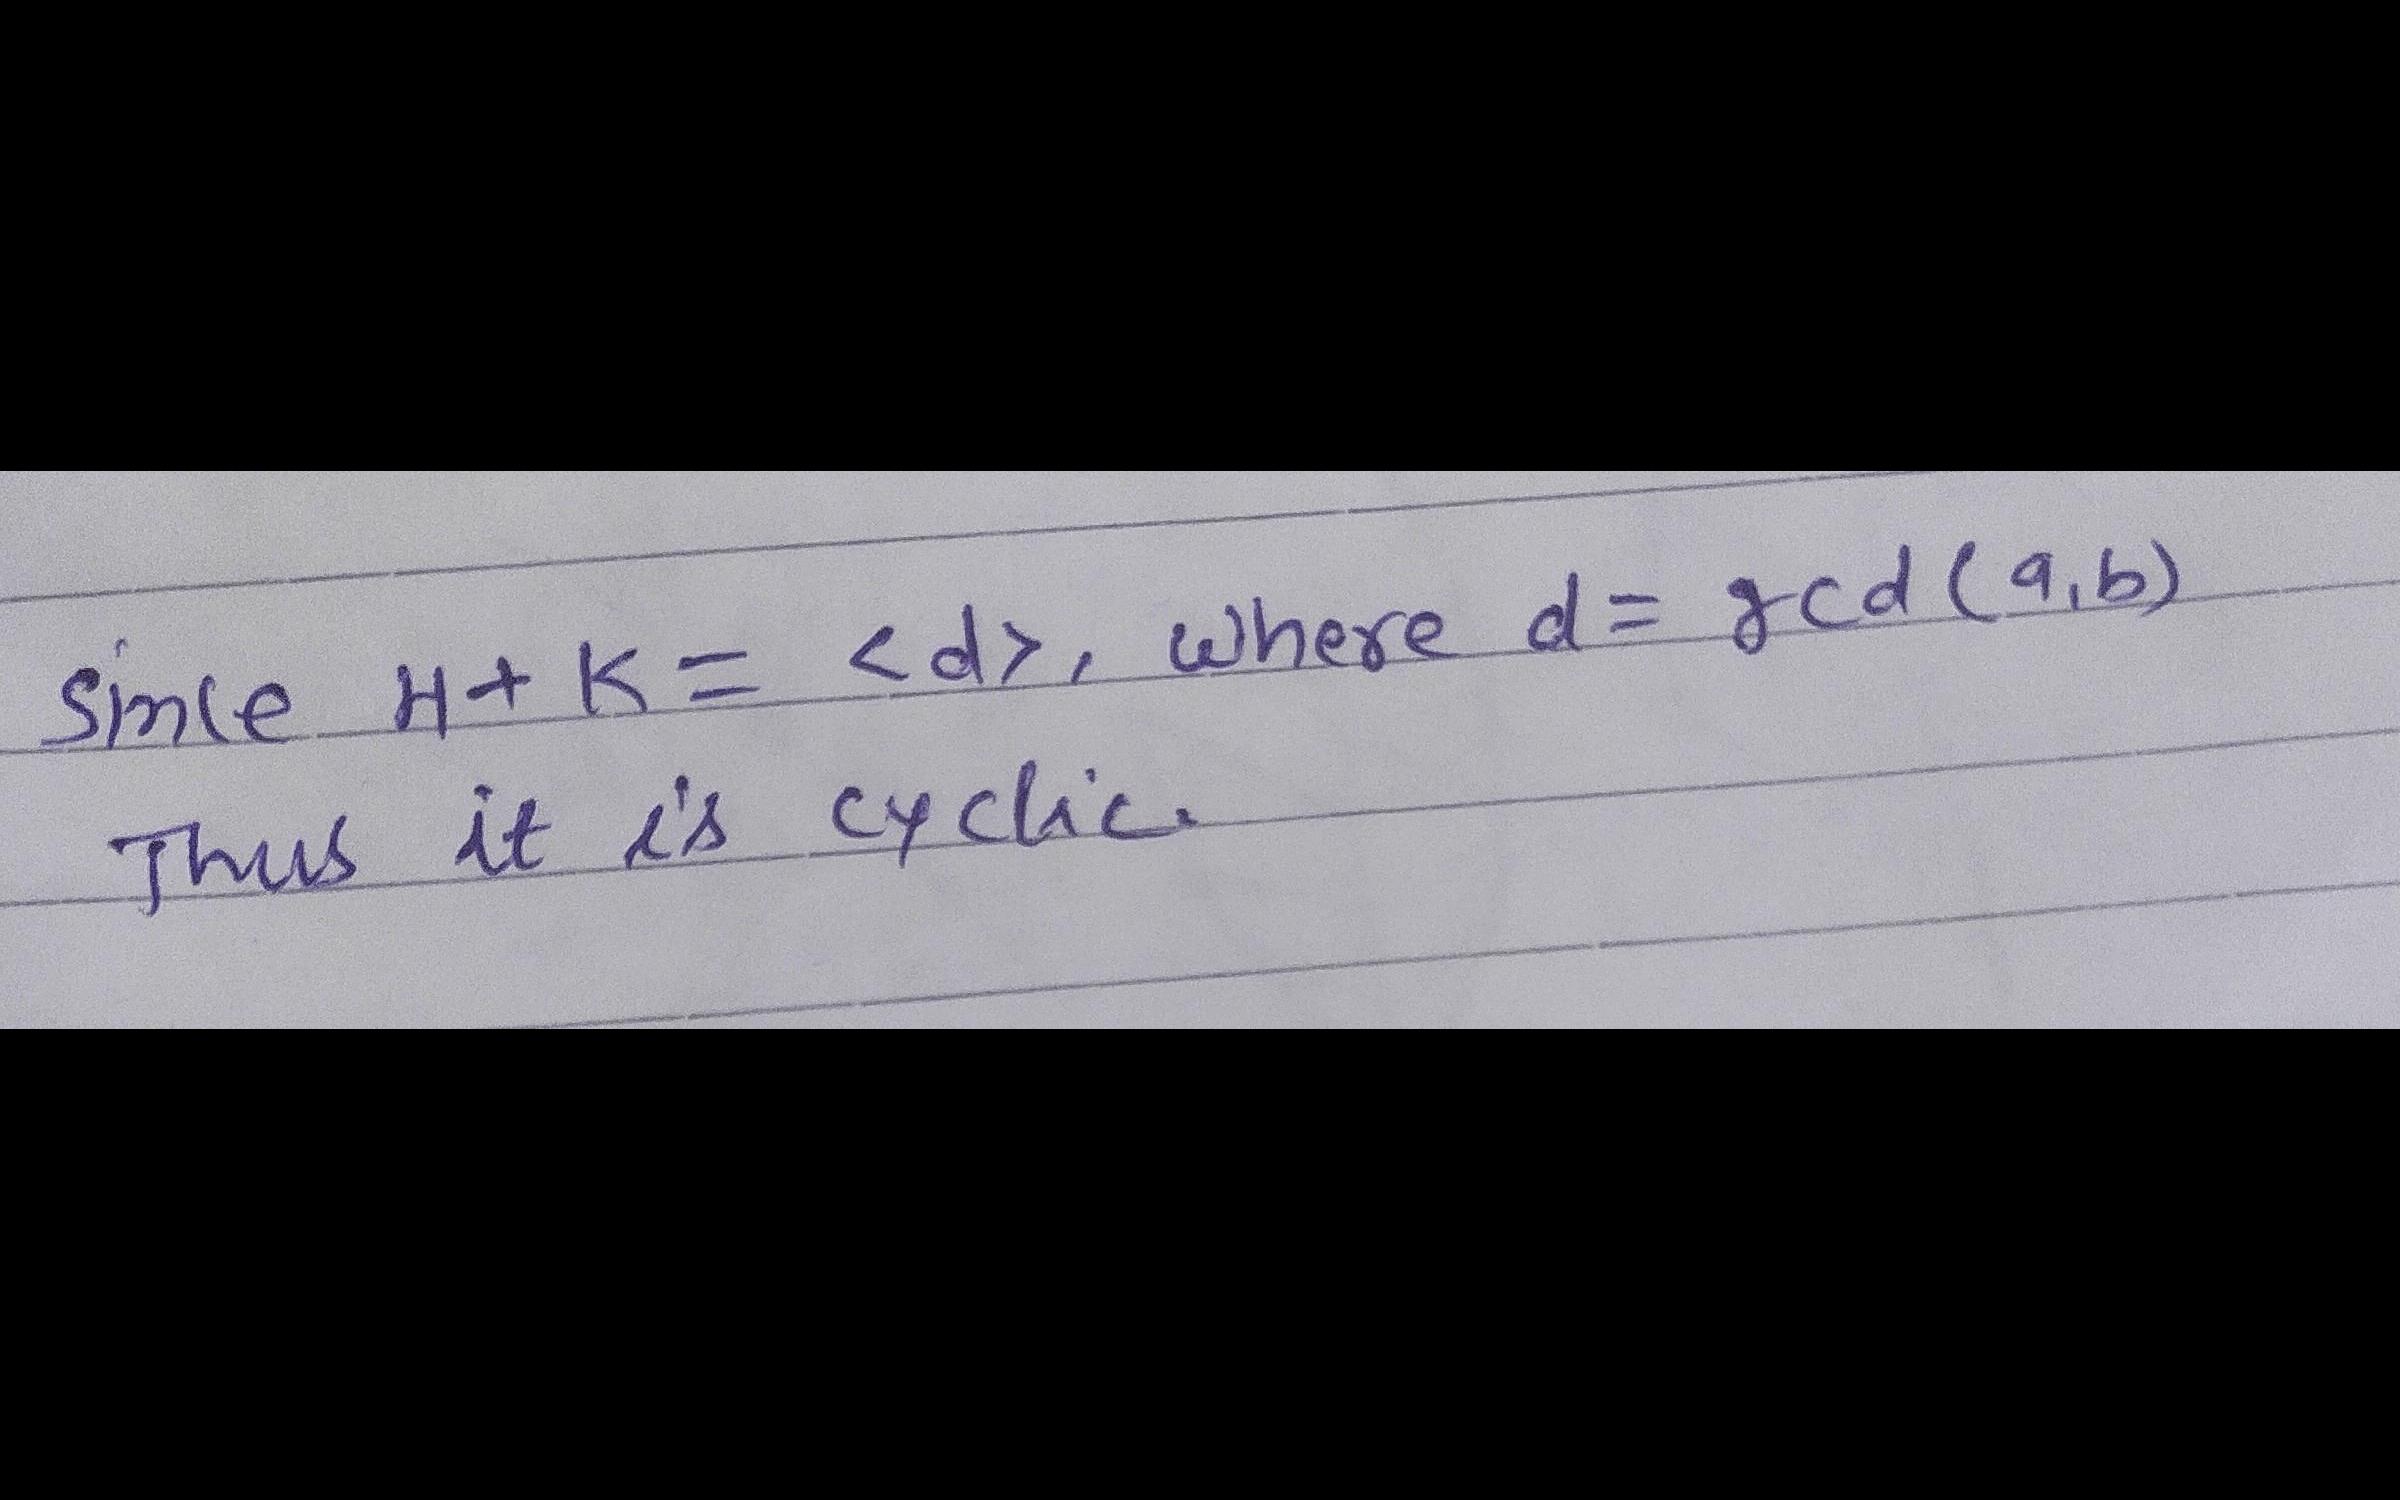 Since H + K = <d>, where d = gcd (a,b)
Thus it is cyclic.